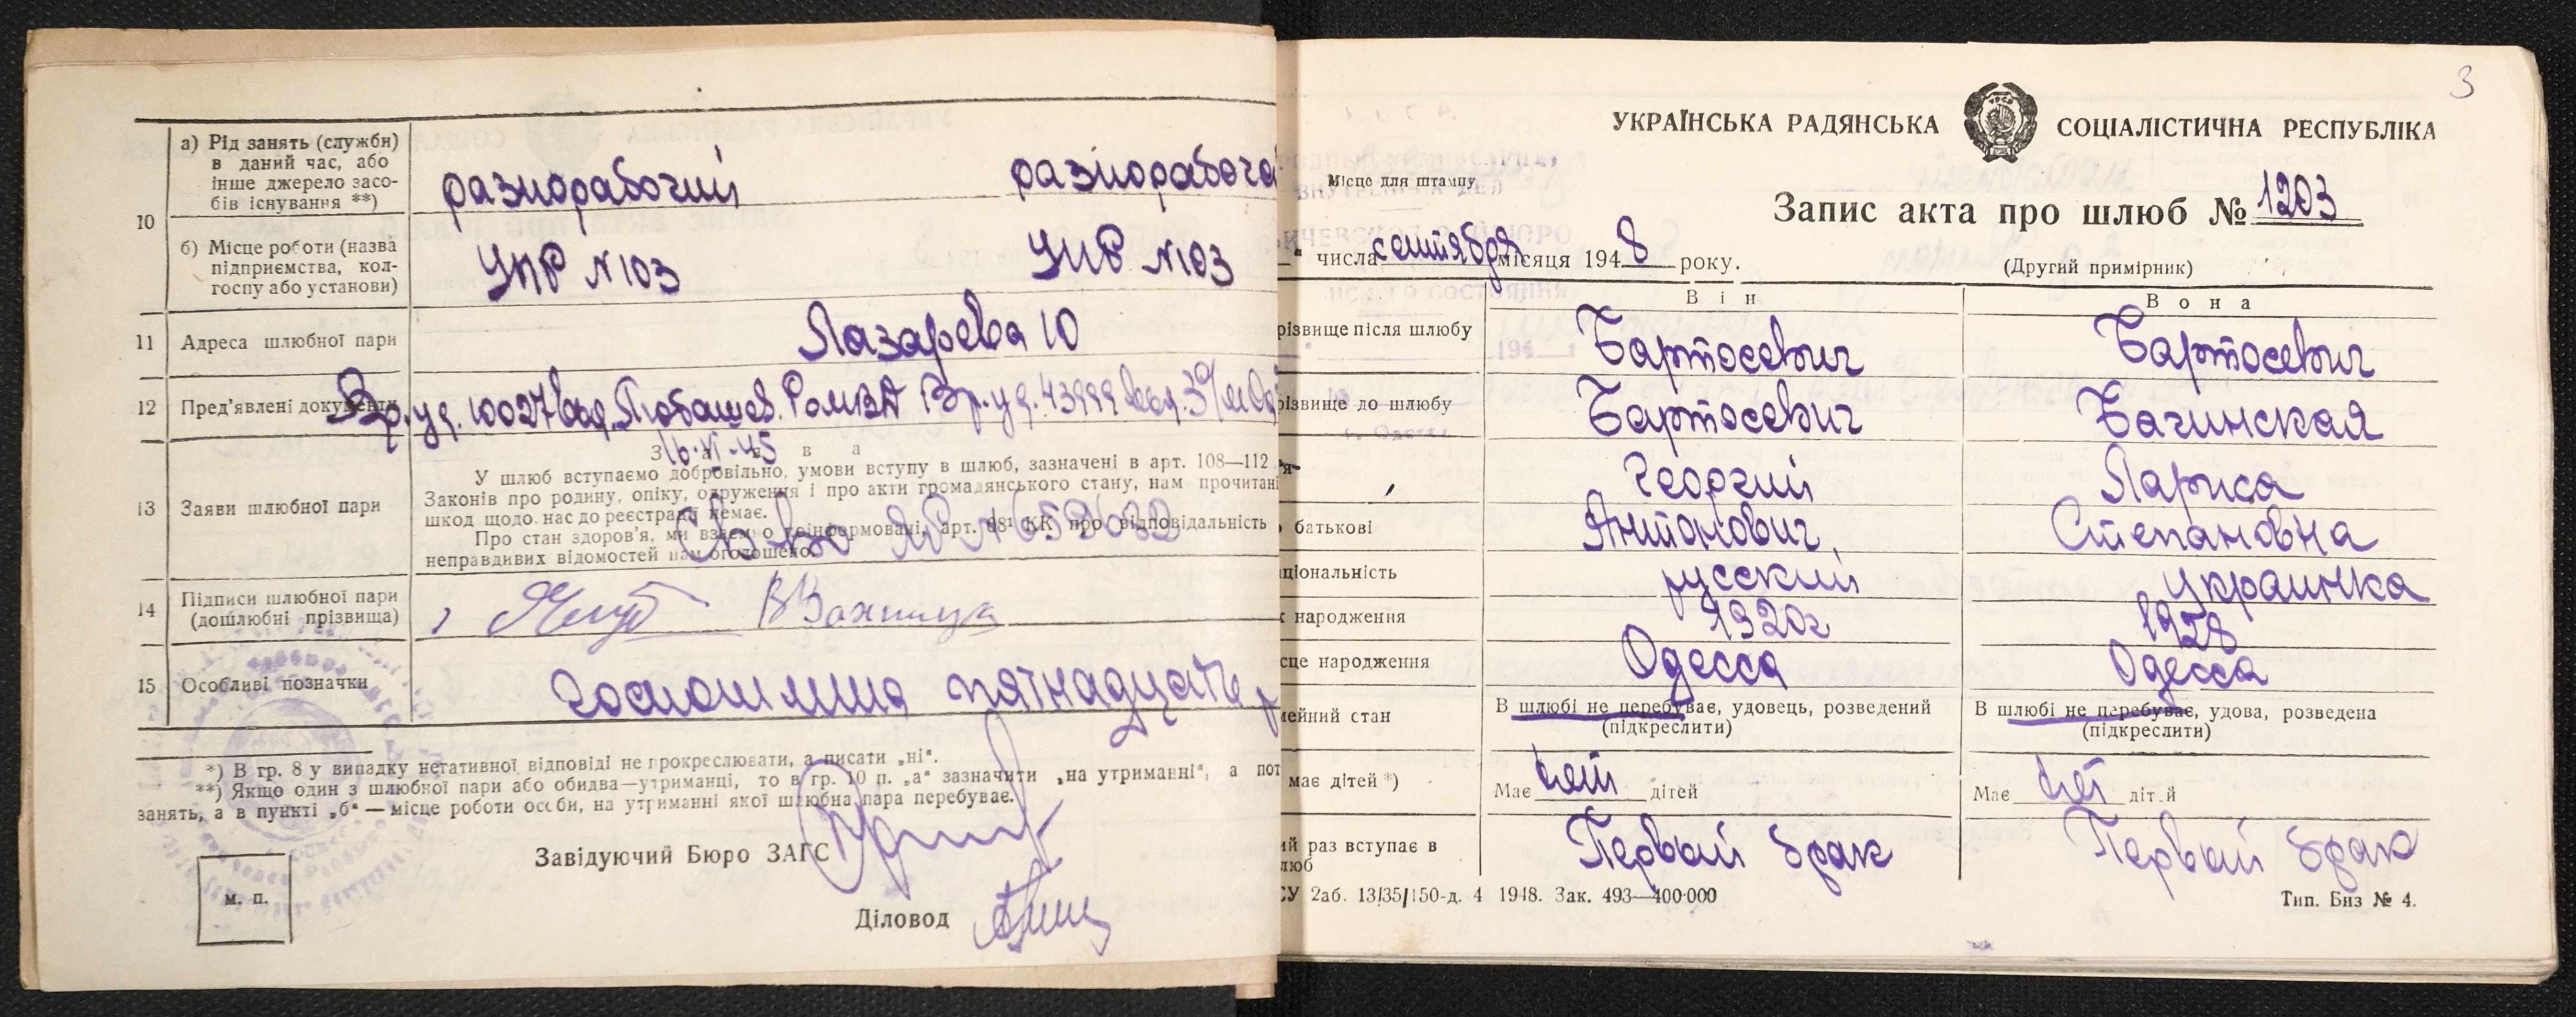 10
а) Рід занять (служби)
в даний час, або
інше джерело засо-
бів існування **)
разнорабочий
разнорабоча
б) Місце роботи (назва
підприємства, кол-
госпу або установи)
УНР №103
УНР №103
11
Адреса шлюбної пари
Лазарева 10
12
Пред'явлені документи
Вр. уд. 10027 выд. Любашев. РОМВД Вр. уд. 43999 выд. 3 о/м Од
16-VI-45
13
Заяви шлюбної пари
Заява
У шлюб вступаємо добровільно, умови вступу в шлюб, зазначені в арт. 108—112
Законів про родину, опіку, одруження і про акти громадянського стану, нам прочитані
шкод щодо нас до реєстрації немає.
Про стан здоров'я, ми взаємо поінформовані, арт. 88¹ КК про відповідальність
неправдивих відомостей нам оголошено.
14
Підписи шлюбної пари
(дошлюбні прізвища)
15
Особливі позначки
госпошлина пятнадцать р
*) В гр. 8 у випадку негативної відповіді не прокреслювати, а писати „ні“.
**) Якщо один з шлюбної пари або обидва—утриманці, то в гр. 10 п. „а“ зазначити „на утриманні“, а пот
занять, а в пункті „б“ — місце роботи особи, на утриманні якої шлюбна пара перебуває.
Завідуючий Бюро ЗАГС
М. П.
Діловод
3
УКРАЇНСЬКА РАДЯНСЬКА СОЦІАЛІСТИЧНА РЕСПУБЛІКА
Місце для штампу
Запис акта про шлюб № 1203
“ числа сентября місяця 1948 року.
(Другий примірник)
Він
Вона
різвище після шлюбу
Бартосевич
Бартосевич
різвище до шлюбу
Бартосевич
Бачинская
Георгий
Лариса
батькові
Антонович
Степановна
ціональність
русский
украинка
народження
1920г
1928
сце народження
Одесса
Одесса
мейний стан
В шлюбі не перебуває, удовець, розведений
(підкреслити)
В шлюбі не перебуває, удова, розведена
(підкреслити)
має дітей *)
Має нет дітей
Має нет дітей
ий раз вступає в
люб
Первый брак
Первый брак
СУ 2аб. 13/35/150-д. 4 1948. Зак. 493—400·000
Тип. Биз № 4.